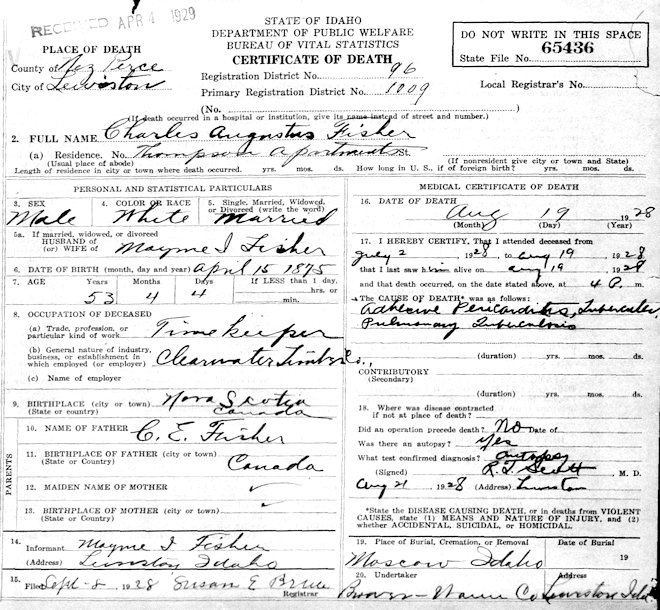 RECEIVED APR 4 1929
STATE OF IDAHO
DEPARTMENT OF PUBLIC WELFARE
BUREAU OF VITAL STATISTICS
CERTIFICATE OF DEATH
DO NOT WRITE IN THIS SPACE
65436
State File No.
PLACE OF DEATH
County of Nez Perce
City of Lewiston
Registration District No. 96
Primary Registration District No. 1009
Local Registrar's No.
(No.
(If death occurred in a hospital or institution, give its name instead of street and number.)
2. FULL NAME Charles Augustus Fisher
(a) Residence. No. Thompson Apartments St.
(Usual place of abode)
(If nonresident give city or town and State)
Length of residence in city or town where death occurred. yrs. mos. ds. How long in U. S., if of foreign birth? yrs. mos. ds.
PERSONAL AND STATISTICAL PARTICULARS
3. SEX
Male
4. COLOR OR RACE
White
5. Single, Married, Widowed, or Divorced (write the word)
Married
5a. If married, widowed, or divorced
HUSBAND of
(or) WIFE of Mayme I Fisher
6. DATE OF BIRTH (month, day and year) April 15 1875
7. AGE Years Months Days If LESS than 1 day, hrs. or min.
53 4 4
8. OCCUPATION OF DECEASED
(a) Trade, profession, or particular kind of work Timekeeper
(b) General nature of industry, business, or establishment in which employed (or employer) Clearwater Timber Co.,
(c) Name of employer
9. BIRTHPLACE (city or town) Nova Scotia
(State or country) Canada
PARENTS
10. NAME OF FATHER C. E. Fisher
11. BIRTHPLACE OF FATHER (city or town)
(State or Country) Canada
12. MAIDEN NAME OF MOTHER ✓
13. BIRTHPLACE OF MOTHER (city or town) ✓
(State or Country)
14.
Informant Mayme I Fisher
(Address) Lewiston Idaho
15.
Filed Sept-8 1928 Susan E Bruce
Registrar
MEDICAL CERTIFICATE OF DEATH
16. DATE OF DEATH
Aug 19 1928
(Month) (Day) (Year)
17. I HEREBY CERTIFY, That I attended deceased from
July 2 1928 to Aug 19 1928
that I last saw him alive on Aug 19 1928
and that death occurred, on the date stated above, at 4 P. m.
The CAUSE OF DEATH* was as follows:
Adhesive Pericarditis, Tubercular
Pulmonary Tuberculosis
(duration) yrs. mos. ds.
CONTRIBUTORY
(Secondary)
(duration) yrs. mos. ds.
18. Where was disease contracted
if not at place of death?
Did an operation precede death? No Date of
Was there an autopsy? Yes
What test confirmed diagnosis? Autopsy
(Signed) R. T. Scott M. D.
Aug 21 1928 (Address) Lewiston
*State the DISEASE CAUSING DEATH, or in deaths from VIOLENT
CAUSES, state (1) MEANS AND NATURE OF INJURY, and (2)
whether ACCIDENTAL, SUICIDAL, or HOMICIDAL.
19. Place of Burial, Cremation, or Removal Date of Burial
Moscow Idaho 19
20. Undertaker (Address)
Co Lewiston Ida